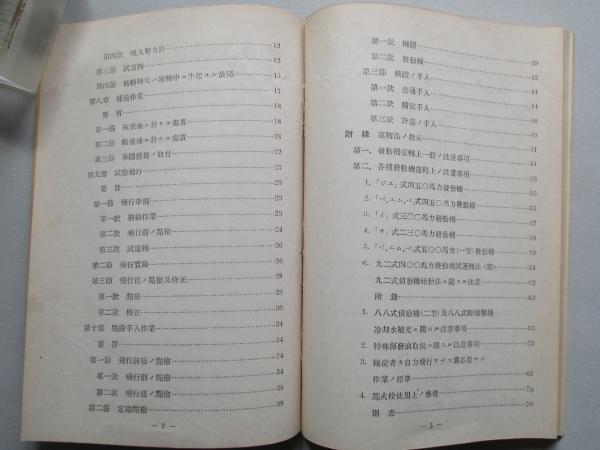 第四款 吸入壓力計 12
第三節 試運轉 12
第四節 始動時又ハ運轉中ニ生起スル故障 15
第八章 補給作業 17
要旨 17
第一節 根據地ニ於ケル處置 18
第二節 著陸地ニ於ケル處置 18
第三節 取付 18
第九章 試驗飛行 23
要旨 23
第一節 飛行準備 23
第一款 補給作業 23
第二款 飛行前ノ點檢 24
第三款 試運轉 26
第二節 飛行實施 26
第三節 飛行後ノ點檢及修正 28
第一款 點檢 28
第二款 修正 30
第十章 點檢手入作業 34
要旨 34
第一節 飛行前後ノ點檢 34
第一款 飛行前ノ點檢 34
第二款 飛行後ノ點檢 38
第二節 定期點檢 39
— 2 —
第一款 機體 39
第二款 發動機 40
第三節 機體ノ手入 44
第一款 普通手入 44
第二款 精密手入 48
第三款 計器ノ手入 49
附錄 運轉法ノ指示 51
第一、發動機運轉上一般ノ注意事項 51
第二、各種發動機運轉上ノ注意事項 52
1,「ジュ」式四五〇馬力發動機 52
2,「ベ,エム,ベ」式四五〇馬力發動機 55
3,「イ」式三〇〇馬力發動機 57
4,「サ」式二三〇馬力發動機 58
5,「ベ,エム,ベ」式五〇〇馬力(一型)發動機 59
6, 九二式四〇〇馬力發動機試運轉法(案) 61
九二式偵察機始動法ニ關スル注意 63
附錄 63
1, 八八式偵察機(二型)及八八式輕爆擊機
冷却水補充ニ關スル注意事項 63
2, 特殊揮發油取扱ニ關スル注意事項 63
3, 操從者カ自力飛行ヲナス爲必要ナル
作業ノ標準 67
4, 點火栓使用上ノ參考 70
別表 70